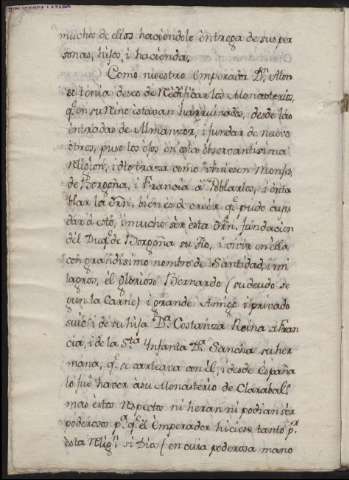 muchos de ellos haciendole entrega de sus per
sonas, hijos, i haciendas,
Como nuestro Emperador Dn. Alon
so tenia deseo de Redificar los Monasterios,
q. en su Reino estavan harruinados, desde las
entradas de Almanzor, i fundar de nuevo
otros, puso los ojos en esta observantisima
Religion, i dio traza como viniesen Monjes
de Borgoña, i Francia a Poblarles, i enta
blar la Orn, bien es de creer q. pudo aiu
dar a esto, i mucho ser esta Orn. fundacion
del Duq. de Borgoña su tio, i vivir en ella
con grandisimo nombre de Santidad, i mi
lagros, el glorioso Bernardo (su deudo se
gun la Carne) i grande Amigo i privado
suio i de su hija Da. Costanza Reina de Fran
cia, i de la Sta. Infanta Da. Sancha su her
mana, q. se carteava con el, i desde España
lo fue haver a su Monasterio de Claraval
mas estos Respectos ni heran ni podian ser
poderosos pa. q. el Emperador hiciese tanto pr.
esta Relign. si Dios (en cuia poderosa mano